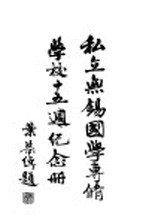 私立無錫國學專脩
學校十五週紀念册
葉恭綽題